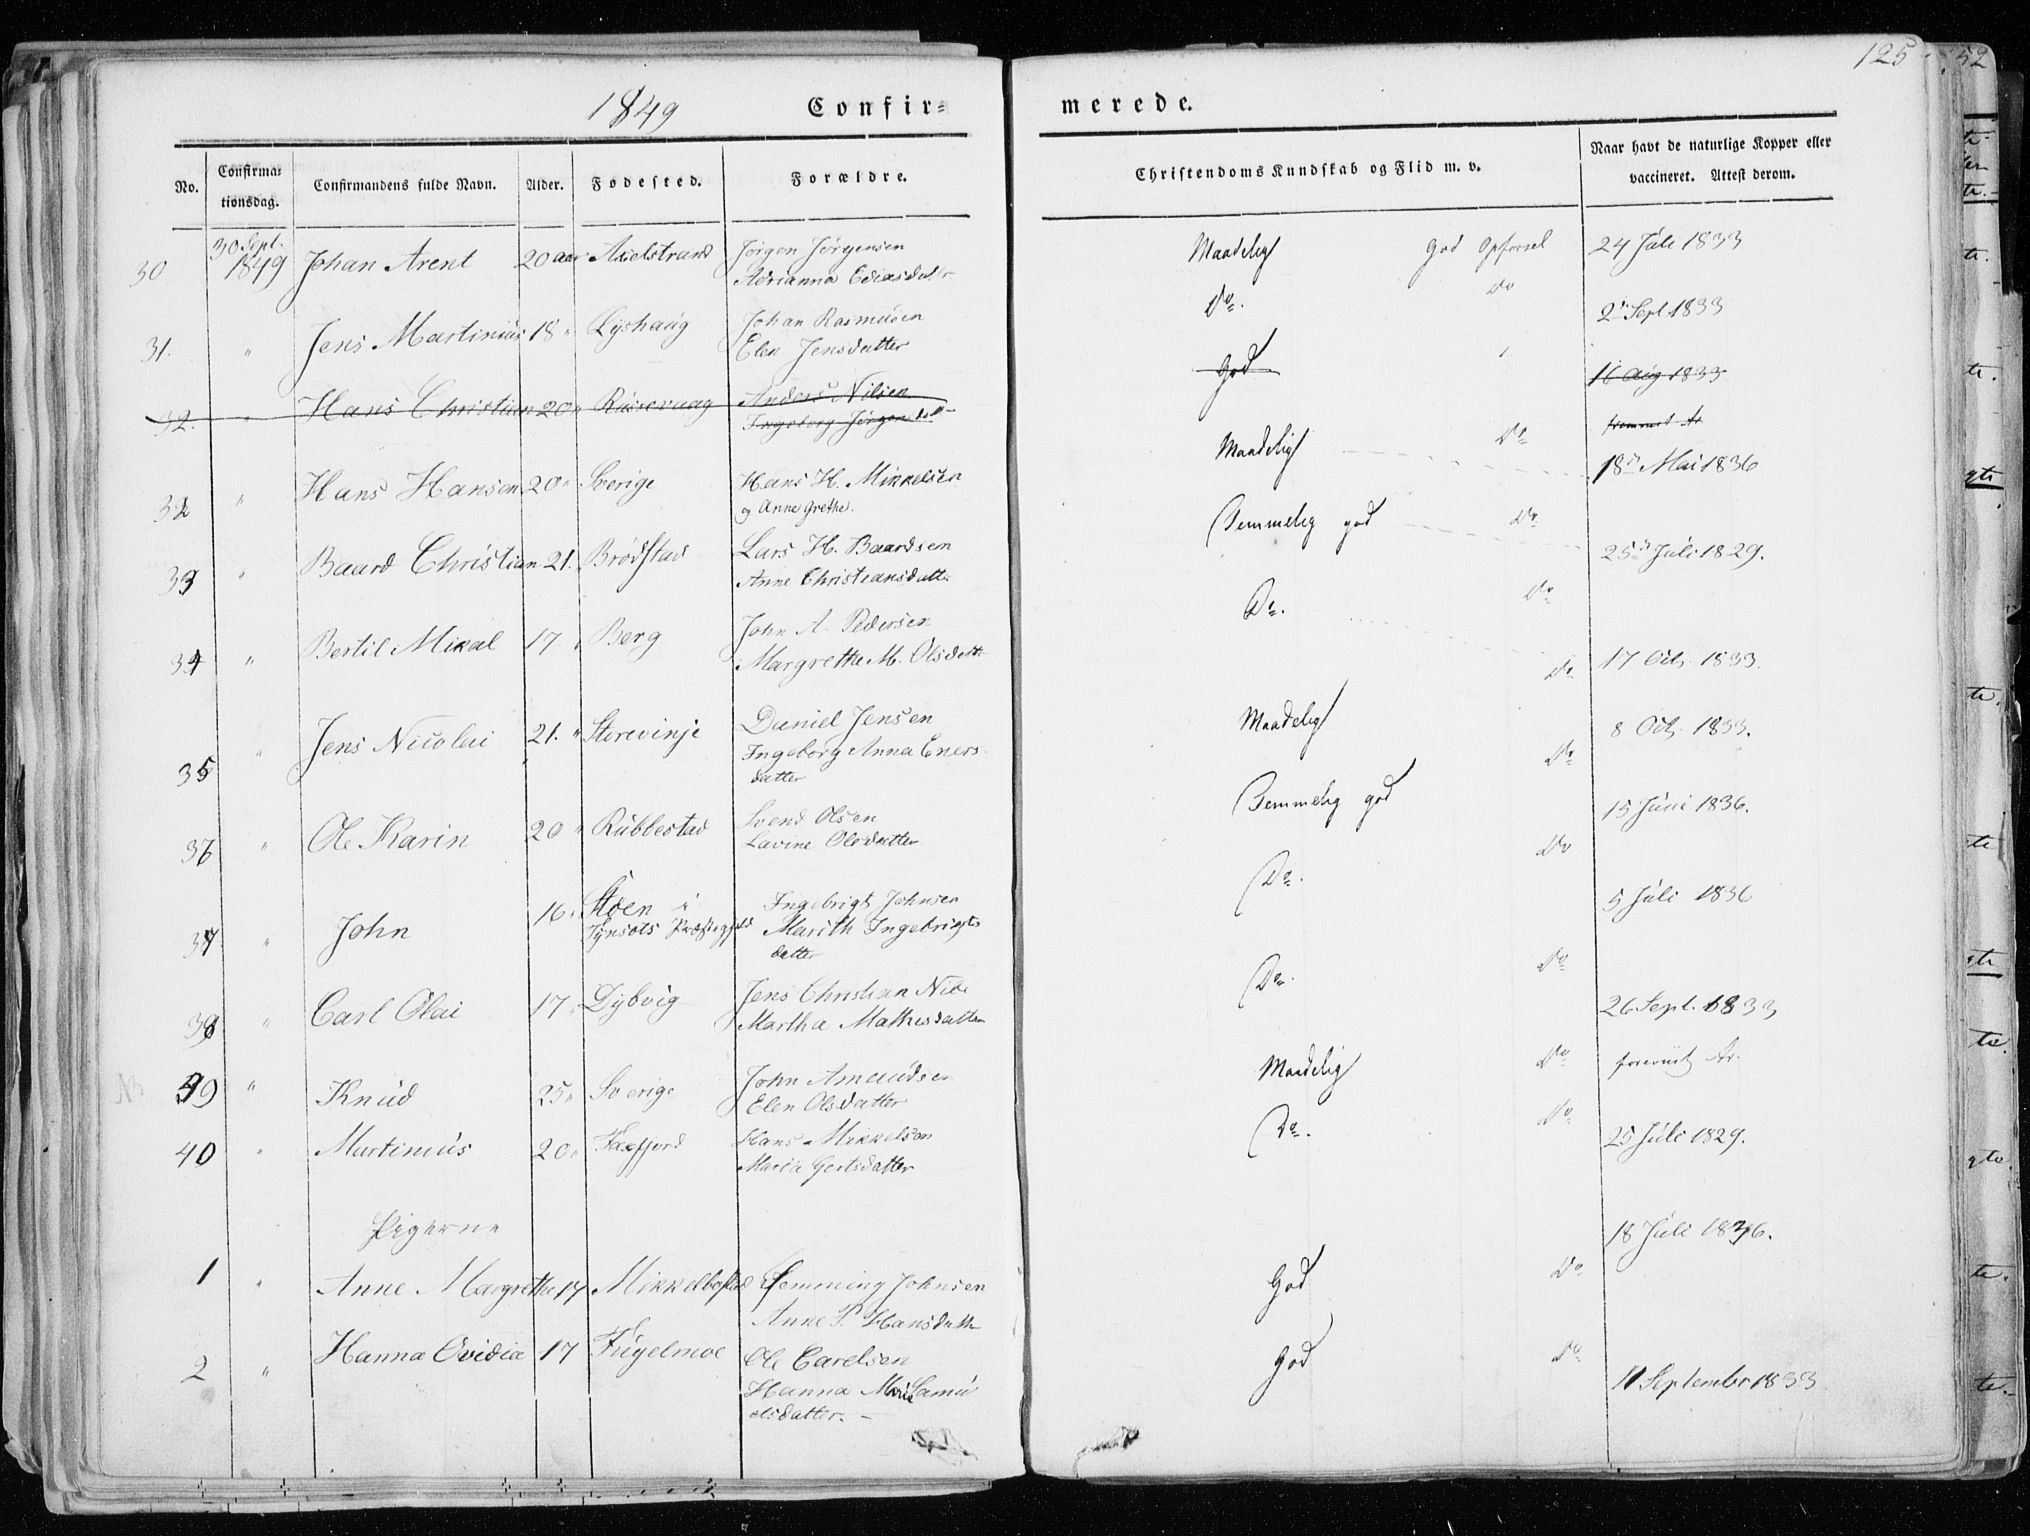 125
52
1849 Confir= merede.
No. Confirma= tionsdag. Confirmandens fulde Navn. Alder. Fødested. Forældre. Christendoms Kundskab og Flid m. v. Naar havt de naturlige Kopper eller vaccineret. Attest derom.
30 30 Sept. 1849 Johan Arent 20 aar Axelstrand Jørgen Jørgensen Maadelig God Opførsel 24 Juli 1833
Adrianna
31. " Jens Martinius 18 " Lyshaug Johan Rasmusen Do. Do 2 Sept 1833
Elen Jensdatter
32. " Hans Christian 20 " Anders Nilsen God 16 Aug 1833
Ingeborg Jørgensdatt
32 " Hans Hansen 20 " Sverige Hans H. Mikkelsen Maadelig Do 18 Mai 1836
og Anne Grethe.
33 " Baard Christian 21. Brødstad Lars H. Baardsen Temmelig god Do 25 Juli 1829.
Anne Christiansdatter
34 " Bertil Mikal 17 " Berg John A. Pedersen Do. Do 17 Oct. 1833.
Margrethe M. Olsdatt
35 " Jens Nicolai 21. " Storevinje Daniel Jensen Maadelig Do 8 Oct. 1833.
Ingeborg Anna Eners-
datter
36 " Ole Karin 20 " Rubbestad Svend Olsen Temmelig god Do 15 Juni 1836.
Lavine Olsdatter
37 " John 16 " Støen i Ingebrigt Johnsen Do. Do 5 Juli 1836
Tynsets Præstegjeld Marith Ingebrigts
datter
38 " Carl Olai 17 " Dybvig Jens Christian Do. Do 26 Sept. 1833
Martha Mathisdatter
39 " Knud 25 " Sverige John Amundsen Maadelig Do foreviist Ar.
Elen Olsdatter
40 " Martinius 20 " Faxfjord Hans Mikkelsen Do. Do 25 Juli 1829.
Maria Gertsdatter
Pigerne
1 " Anne Margrethe 17 Mikkelbostad Flemming Johnsen God Do 18 Juli 1836.
Anne P. Hansdatter
2 " Hanna Ovidia 17 Fugelmoe Ole Carelsen God Do 11 September 1833
Hanna Marie Samu
elsdatter. -